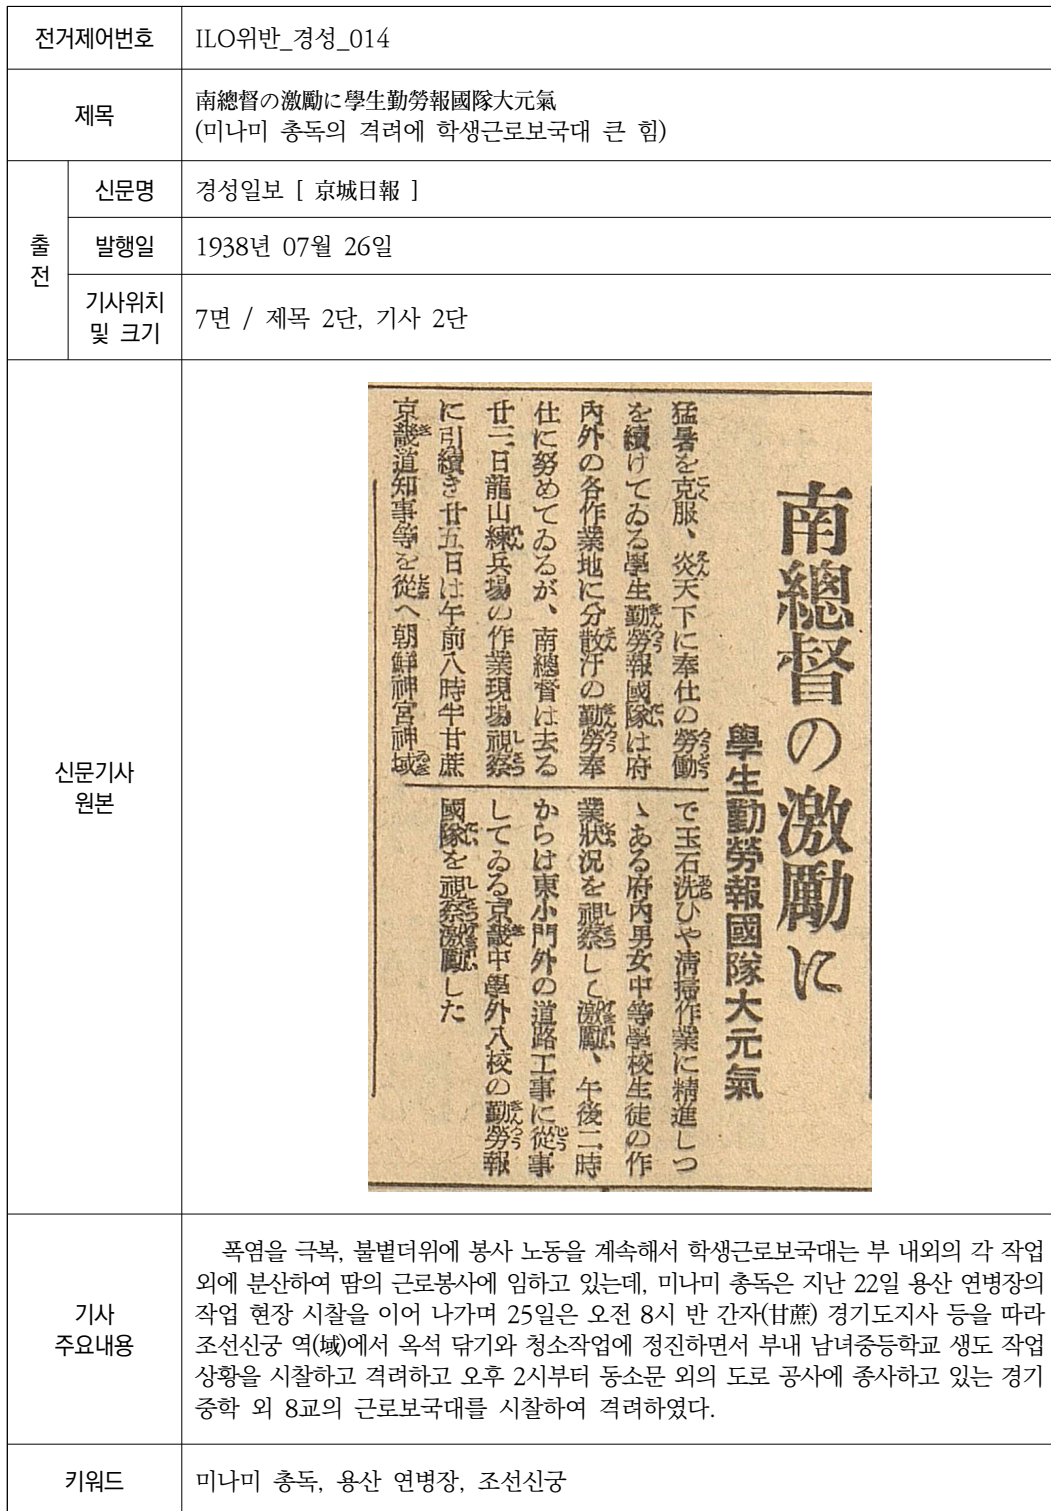 전거제어번호
ILO위반_경성_014
제목
南總督の激勵に學生勤勞報國隊大元氣
(미나미 총독의 격려에 학생근로보국대 큰 힘)
출전
신문명
경성일보 [ 京城日報 ]
발행일
1938년 07월 26일
기사위치
및 크기
7면 / 제목 2단, 기사 2단
신문기사
원본
南總督の激勵に
學生勤勞報國隊大元氣
猛暑を克服、炎天下に奉仕の勞働
を續けてゐる學生勤勞報國隊は府
內外の各作業地に分散汗の勤勞奉
仕に努めてゐるが、南總督は去る
廿二日龍山練兵場の作業現場視察
に引續き廿五日は午前八時半甘蔗
京畿道知事等を從へ朝鮮神宮神域
で玉石洗ひや淸掃作業に精進しつ
ゝある府內男女中等學校生徒の作
業狀況を視察して激勵、午後二時
からは東小門外の道路工事に從事
してゐる京畿中學外八校の勤勞報
國隊を視察激勵した
기사
주요내용
폭염을 극복, 불볕더위에 봉사 노동을 계속해서 학생근로보국대는 부 내외의 각 작업
외에 분산하여 땀의 근로봉사에 임하고 있는데, 미나미 총독은 지난 22일 용산 연병장의
작업 현장 시찰을 이어 나가며 25일은 오전 8시 반 간자(甘蔗) 경기도지사 등을 따라
조선신궁 역(域)에서 옥석 닦기와 청소작업에 정진하면서 부내 남녀중등학교 생도 작업
상황을 시찰하고 격려하고 오후 2시부터 동소문 외의 도로 공사에 종사하고 있는 경기
중학 외 8교의 근로보국대를 시찰하여 격려하였다.
키워드
미나미 총독, 용산 연병장, 조선신궁